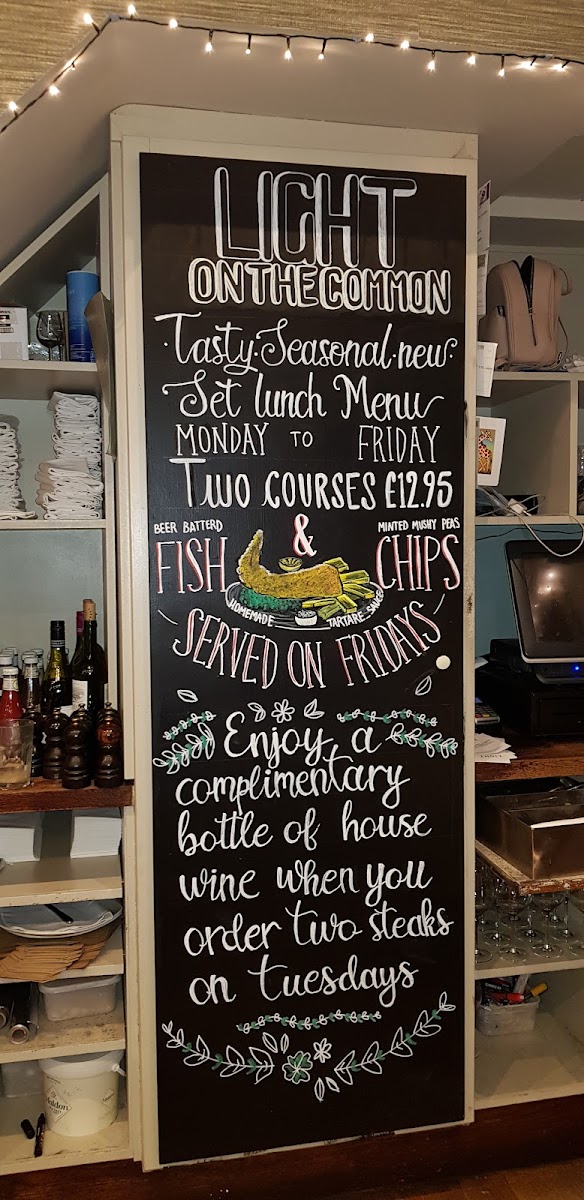 LIGHT
ON THE COMMON
Tasty. Seasonal. new.
Set lunch Menu
MONDAY TO FRIDAY
TWO COURSES £12.95
BEER BATTERD
MINTED MUSHY PEAS
FISH & CHIPS
HOMEMADE TARTARE SAUCE
SERVED ON FRIDAYS
Enjoy a
complimentary
bottle of house
wine when you
order two steaks
on tuesdays